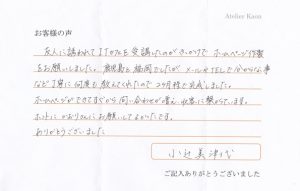 Atelier Kaon
お客様の声
友人に誘われてITカフェを受講したのがきっかけで ホームページ作製
をお願いしました。鹿児島と福岡でしたが メールやTELで分からない事
など丁寧に何度も教えてくれたので 2ヶ月程で完成しました。
ホームページができてすぐから 問い合わせが増え 収客に繋がってます。
ホントに かおりさんにお願いしてよかったです。
ありがとうございました
小辻美津代
ご記入ありがとうございました